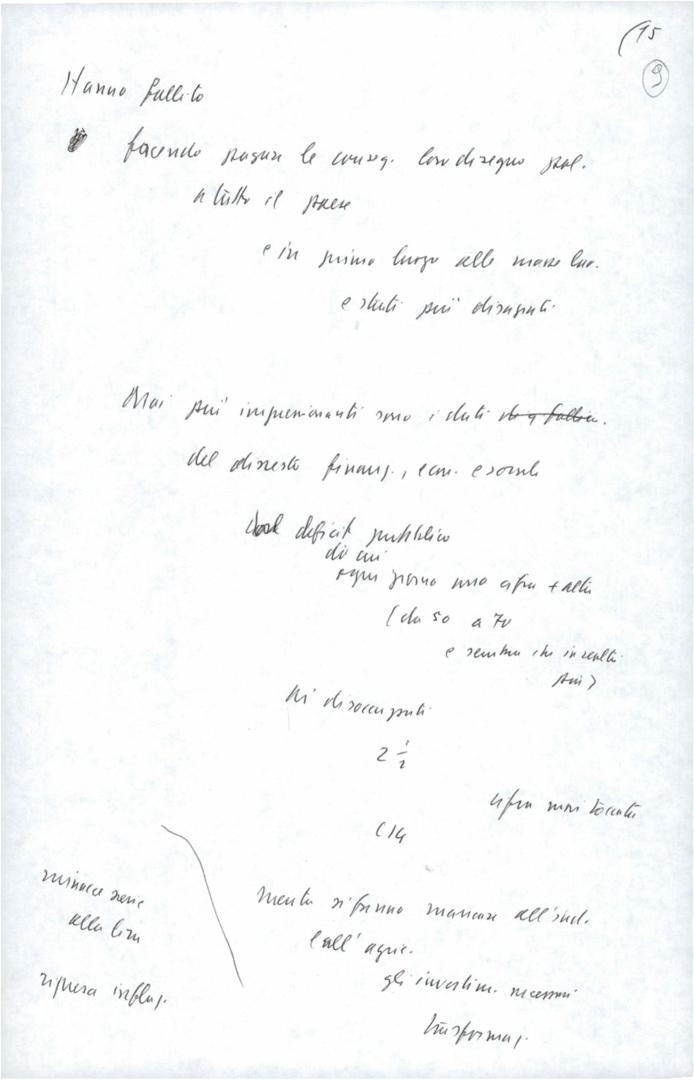 (15
9
Hanno fallito
facendo pagare le conseg. loro disegno pol.
a tutto il paese
e in primo luogo alle masse lav.
e strati più disagiati
Mai più impressionanti sono i dati
del dissesto finanz., econ. e sociale
deficit pubblico
di cui
ogni giorno una cifra + alta
(da 50 a 70
e sembra che in realtà
più)
di disoccupati
2 1/2
cifra mai toccata
(CIG
mentre si fanno mancare all'ind.
e all'agric.
gli investim. necessari
trasformaz.
minacce serie
alla lira
ripresa inflaz.